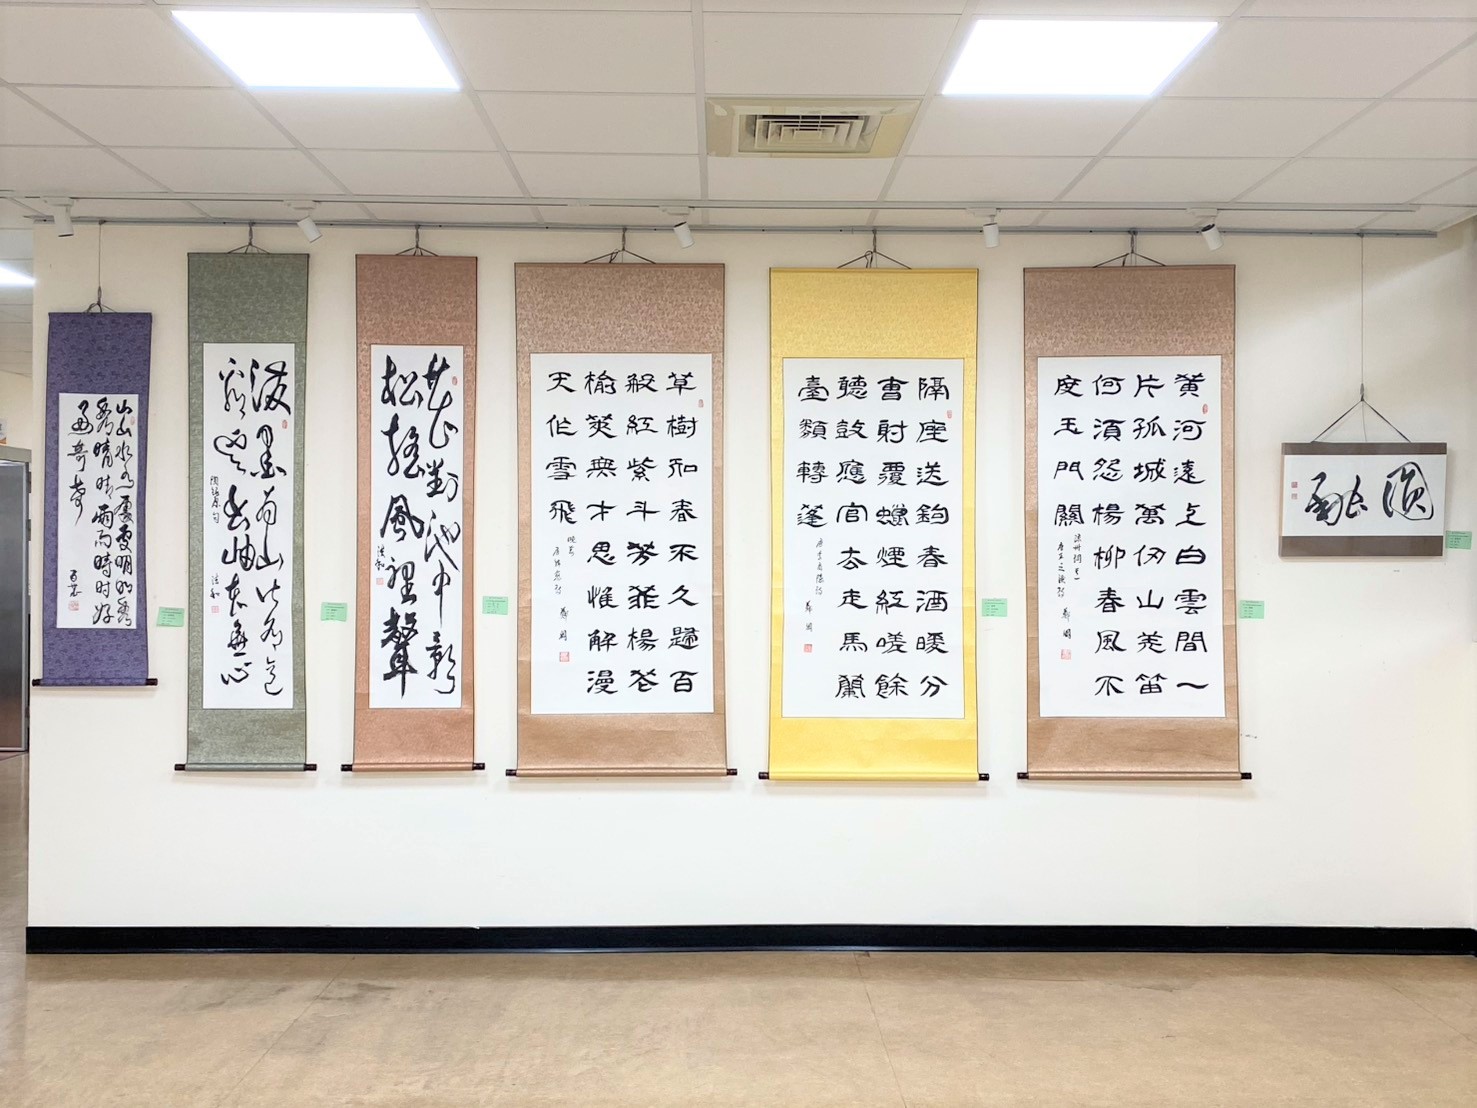 圓融
黃河遠上白雲間一
片孤城萬仞山羌笛
何須怨楊柳春風不
度玉門關
涼州詞其一
唐王之渙詩
隔座送鉤春酒暖分
曹射覆蠟燈紅嗟餘
聽鼓應官去走馬蘭
臺類轉蓬
唐李商隱詩
草樹知春不久歸百
般紅紫斗芳菲楊花
榆莢無才思惟解漫
天作雪飛
晚春
唐韓愈詩
花對池中影
松搖風裡聲
法和
潑墨為山皆有意
雲出岫本無心
法和
山山水水處處明明秀
秀晴晴雨雨時時好
好奇奇